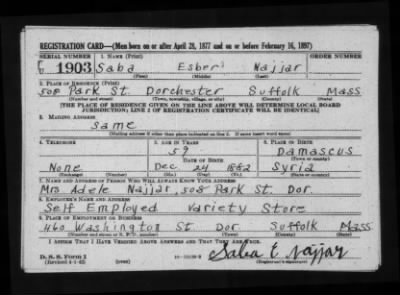 REGISTRATION CARD—(Men born on or after April 28, 1877 and on or before February 16, 1897)
SERIAL NUMBER 1. NAME (Print) ORDER NUMBER
U 1903 Saba Esber Najjar
(First) (Middle) (Last)
2. PLACE OF RESIDENCE (Print)
508 Park St. Dorchester Suffolk Mass
(Number and street) (Town, township, village, or city) (County) (State)
[THE PLACE OF RESIDENCE GIVEN ON THE LINE ABOVE WILL DETERMINE LOCAL BOARD
JURISDICTION; LINE 2 OF REGISTRATION CERTIFICATE WILL BE IDENTICAL]
3. MAILING ADDRESS
Same
[Mailing address if other than place indicated on line 2. If same insert word same]
4. TELEPHONE 5. AGE IN YEARS 6. PLACE OF BIRTH
59 Damascus
DATE OF BIRTH (Town or county)
None Dec. 24 1882 Syria
(Exchange) (Number) (Mo.) (Day) (Yr.) (State or country)
7. NAME AND ADDRESS OF PERSON WHO WILL ALWAYS KNOW YOUR ADDRESS
Mrs Adele Najjar, 508 Park St. Dor.
8. EMPLOYER'S NAME AND ADDRESS
Self Employed Variety Store
9. PLACE OF EMPLOYMENT OR BUSINESS
460 Washington St Dor Suffolk Mass
(Number and street or R. F. D. number) (Town) (County) (State)
I AFFIRM THAT I HAVE VERIFIED ABOVE ANSWERS AND THAT THEY ARE TRUE.
D. S. S. Form 1
(Revised 4-1-42) Saba E. Najjar